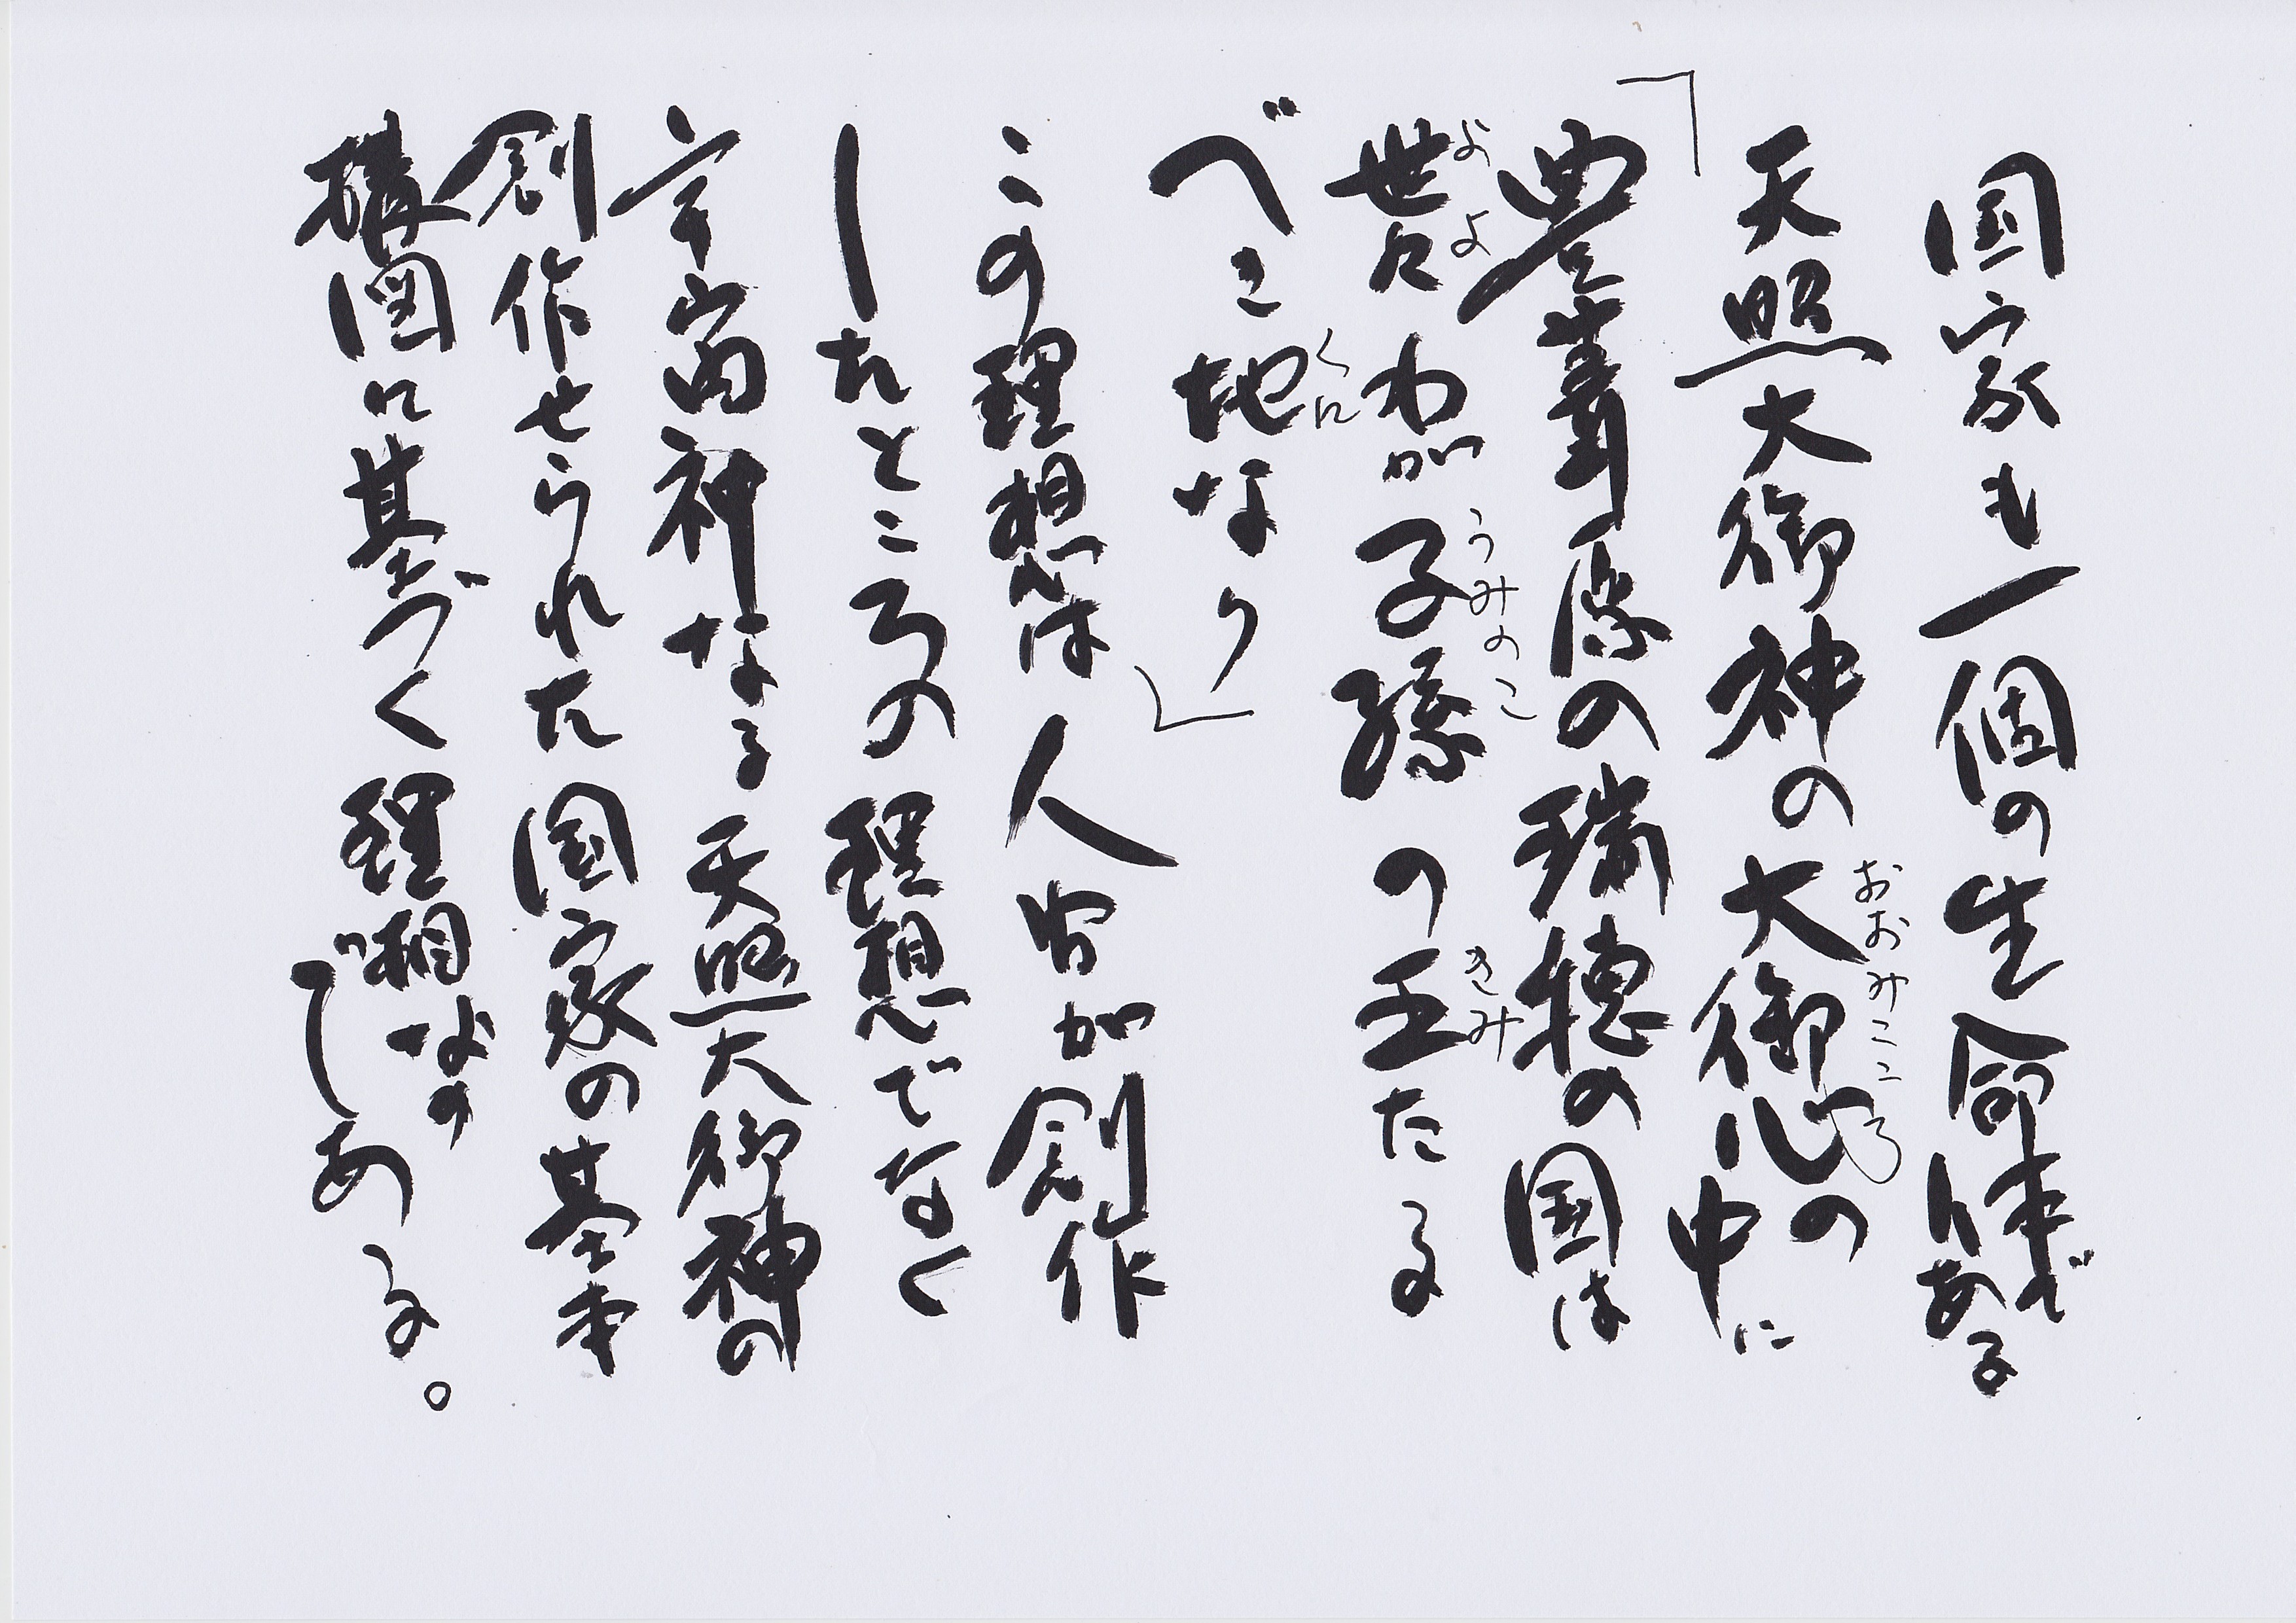 国家も一個の生命体である
天照大御神の大御心の中に
「豊葦原の瑞穂の国は
世々わが子孫の王たる
べき地なり」
この理想は人間が創作
したところの理想でなく
宇宙神なる天照大御神の
創作せられた国家の基本
構図に基づく理想なのである。
おおみこころ
よよ
うみのこ
きみ
くに